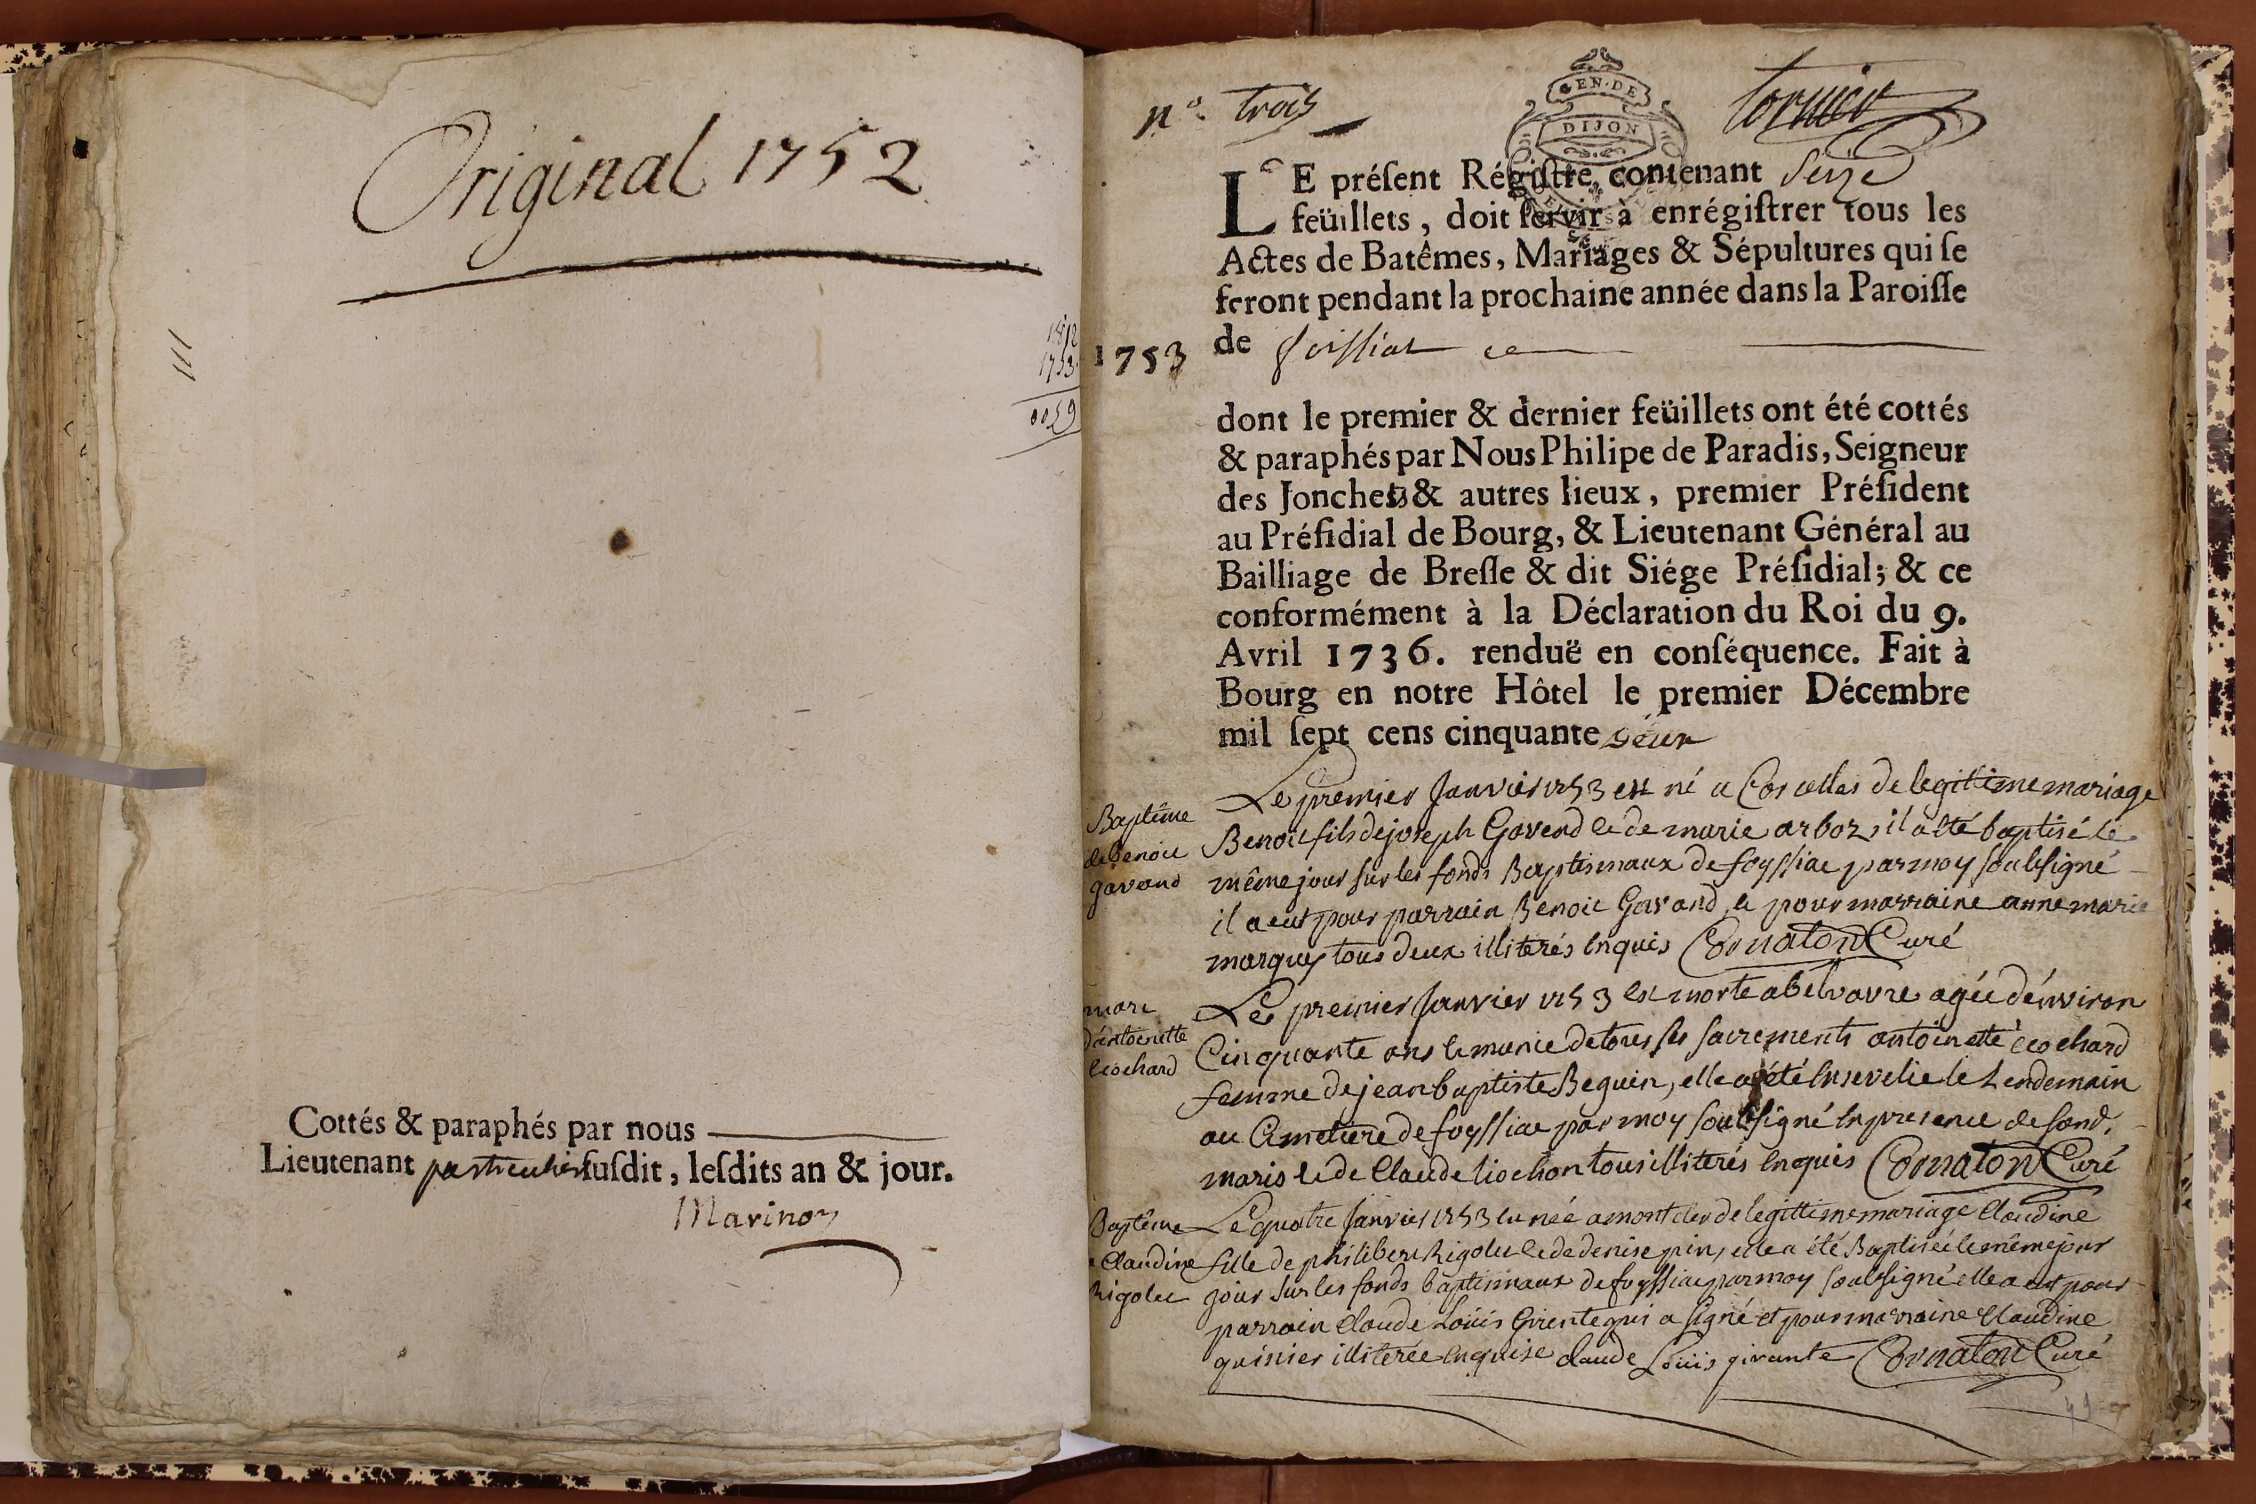 Original 1752
1812
1753
0059
Cottés & paraphés par nous
Lieutenant particulier susdit, lesdits an & jour.
Marinon
N.º trois
GEN·DE
DIJON
LE préſent Régiſtre, contenant Seize
feüillets, doit ſervir à enrégiſtrer tous les
Actes de Batêmes, Mariages & Sépultures qui ſe
feront pendant la prochaine année dans la Paroiſſe
1753
de foissiat
dont le premier & dernier feüillets ont été cottés
& paraphés par Nous Philipe de Paradis, Seigneur
des Jonchets & autres lieux, premier Préſident
au Préſidial de Bourg, & Lieutenant Général au
Bailliage de Breſſe & dit Siége Préſidial; & ce
conformément à la Déclaration du Roi du 9.
Avril 1736. renduë en conſéquence. Fait à
Bourg en notre Hôtel le premier Décembre
mil ſept cens cinquante deux
Baptême
de Benoit
gavand
Le premier Janvier 1753 est né a Corcelles de legittime mariage
Benoit fils de joseph Gavend et de marie arboz, il a été baptisé le
même jour sur les fonds Baptismaux de foyssiat par moy soubsigné
il a eut pour parrain Benoit Gavand, et pour marraine anne marie
marguy tous deux illiterés Enquis Cornaton Curé
mort
d'antoinette
Cochard
Le premier Janvier 1753 est morte a belvavre agée d'environ
Cinquante ans et munie de tous ses sacrements antoinette Cochard
femme de jean baptiste Beguin, elle a été Ensevelie le Lendemain
au Cimetiere de foyssiat par moy soubsigné En presence de sond.
maris et de Claude liochon tous illiterés Enquis Cornaton Curé
Baptême
Claudine
Rigolet
Le quatre Janvier 1753 est née a montcler de legittime mariage Claudine
fille de philibert Rigolet et de denise pin, elle a été Baptisée le même jour
jour sur les fonds baptismaux de foyssiat par moy soubsigné elle a eut pour
parrain Claude Loüis Girente qui a signé et pour marraine Claudine
guinier illiterée Enquise claude Loüis girante Cornaton Curé